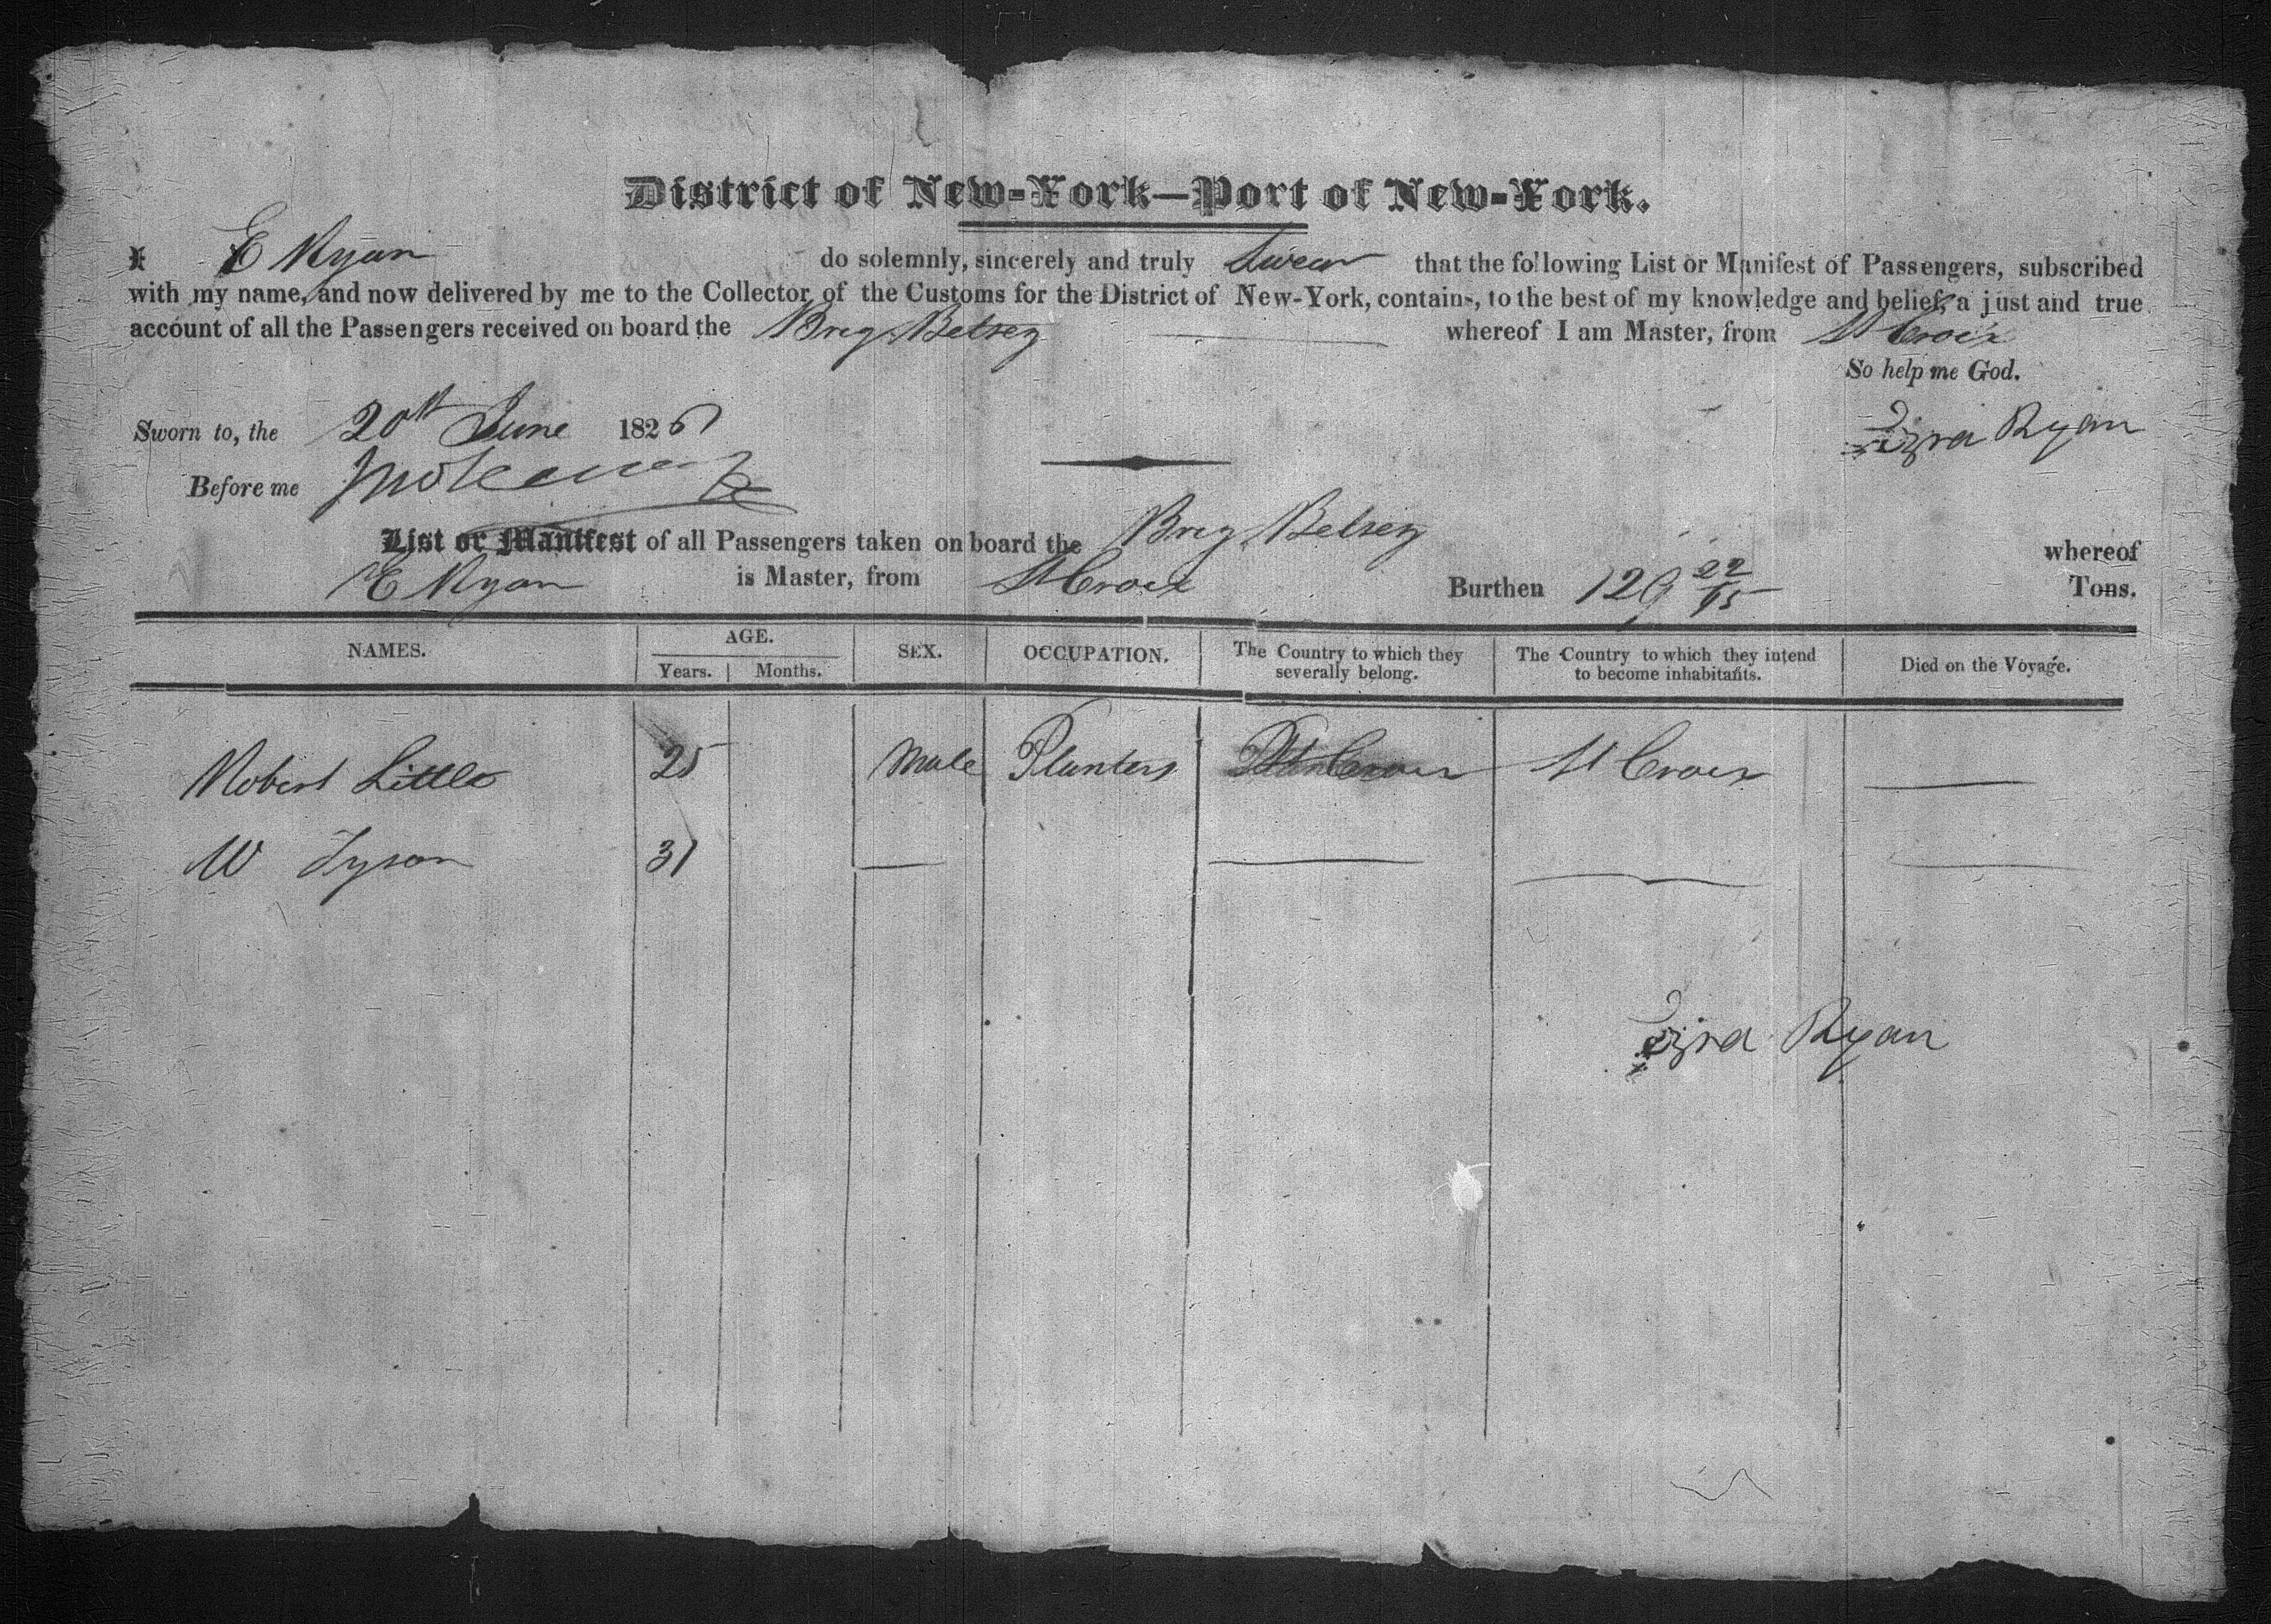 District of New-York—Port of New-York.
I E Ryan do solemnly, sincerely and truly Swear that the following List or Manifest of Passengers, subscribed
with my name, and now delivered by me to the Collector of the Customs for the District of New-York, contains, to the best of my knowledge and belief, a just and true
account of all the Passengers received on board the Brig Betsey whereof I am Master, from St Croix
So help me God.
Sworn to, the 20th June 1826 Ezra Ryan
Before me
List or Manifest of all Passengers taken on board the Brig Betsey whereof
E Ryan is Master, from St Croix Burthen 129 22/95 Tons.
NAMES. AGE. SEX. OCCUPATION. The Country to which they severally belong. The Country to which they intend to become inhabitants. Died on the Voyage.
Years. Months.
Robert Little 25 Male Planters St Croix St Croix —
W Tyson 31 — — — —
Ezra Ryan